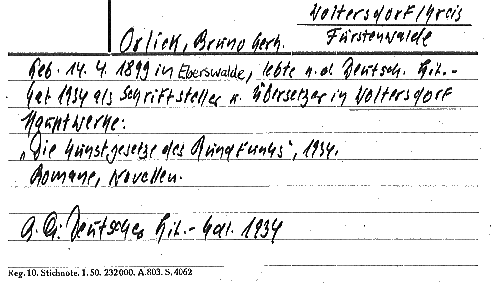 Woltersdorf/Kreis
Fürstenwalde
Orlick, Bruno Gerh.
Geb. 14. 4. 1899 in Eberswalde, lebte n. d. Deutsch. Lit.-
Kal 1934 als Schriftsteller u. Übersetzer in Woltersdorf
Hauptwerke:
„Die Kunstgesetze des Rundfunks", 1934.
Romane, Novellen.
Deutscher Lit.-Kal. 1934
Reg. 10. Stichnote. 1. 50. 232000. A. 803. S. 4062